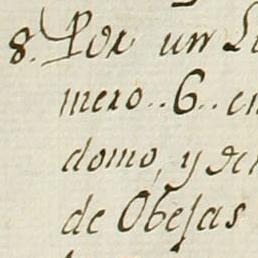 8. Por un Li
mero..6..en
domo, y de
de Obejas